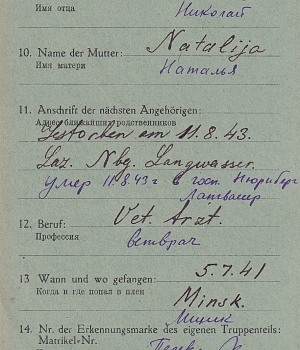 Имя отца Николай
10. Name der Mutter: Natalija
Имя матери Наталья
11. Anschrift der nächsten Angehörigen:
Адрес ближайших родственников
Gestorben am 11.8.43.
Laz. Nbg. Langwasser.
умер 11.8.43 г в госп. Нюрнберг
Лангвасер
12. Beruf: Vet. Arzt.
Профессия Ветврач
13 Wann und wo gefangen: 5.7.41
Когда и где попал в плен Minsk.
Минск
14. Nr. der Erkennungsmarke des eigenen Truppenteils:
Matrikel-Nr.